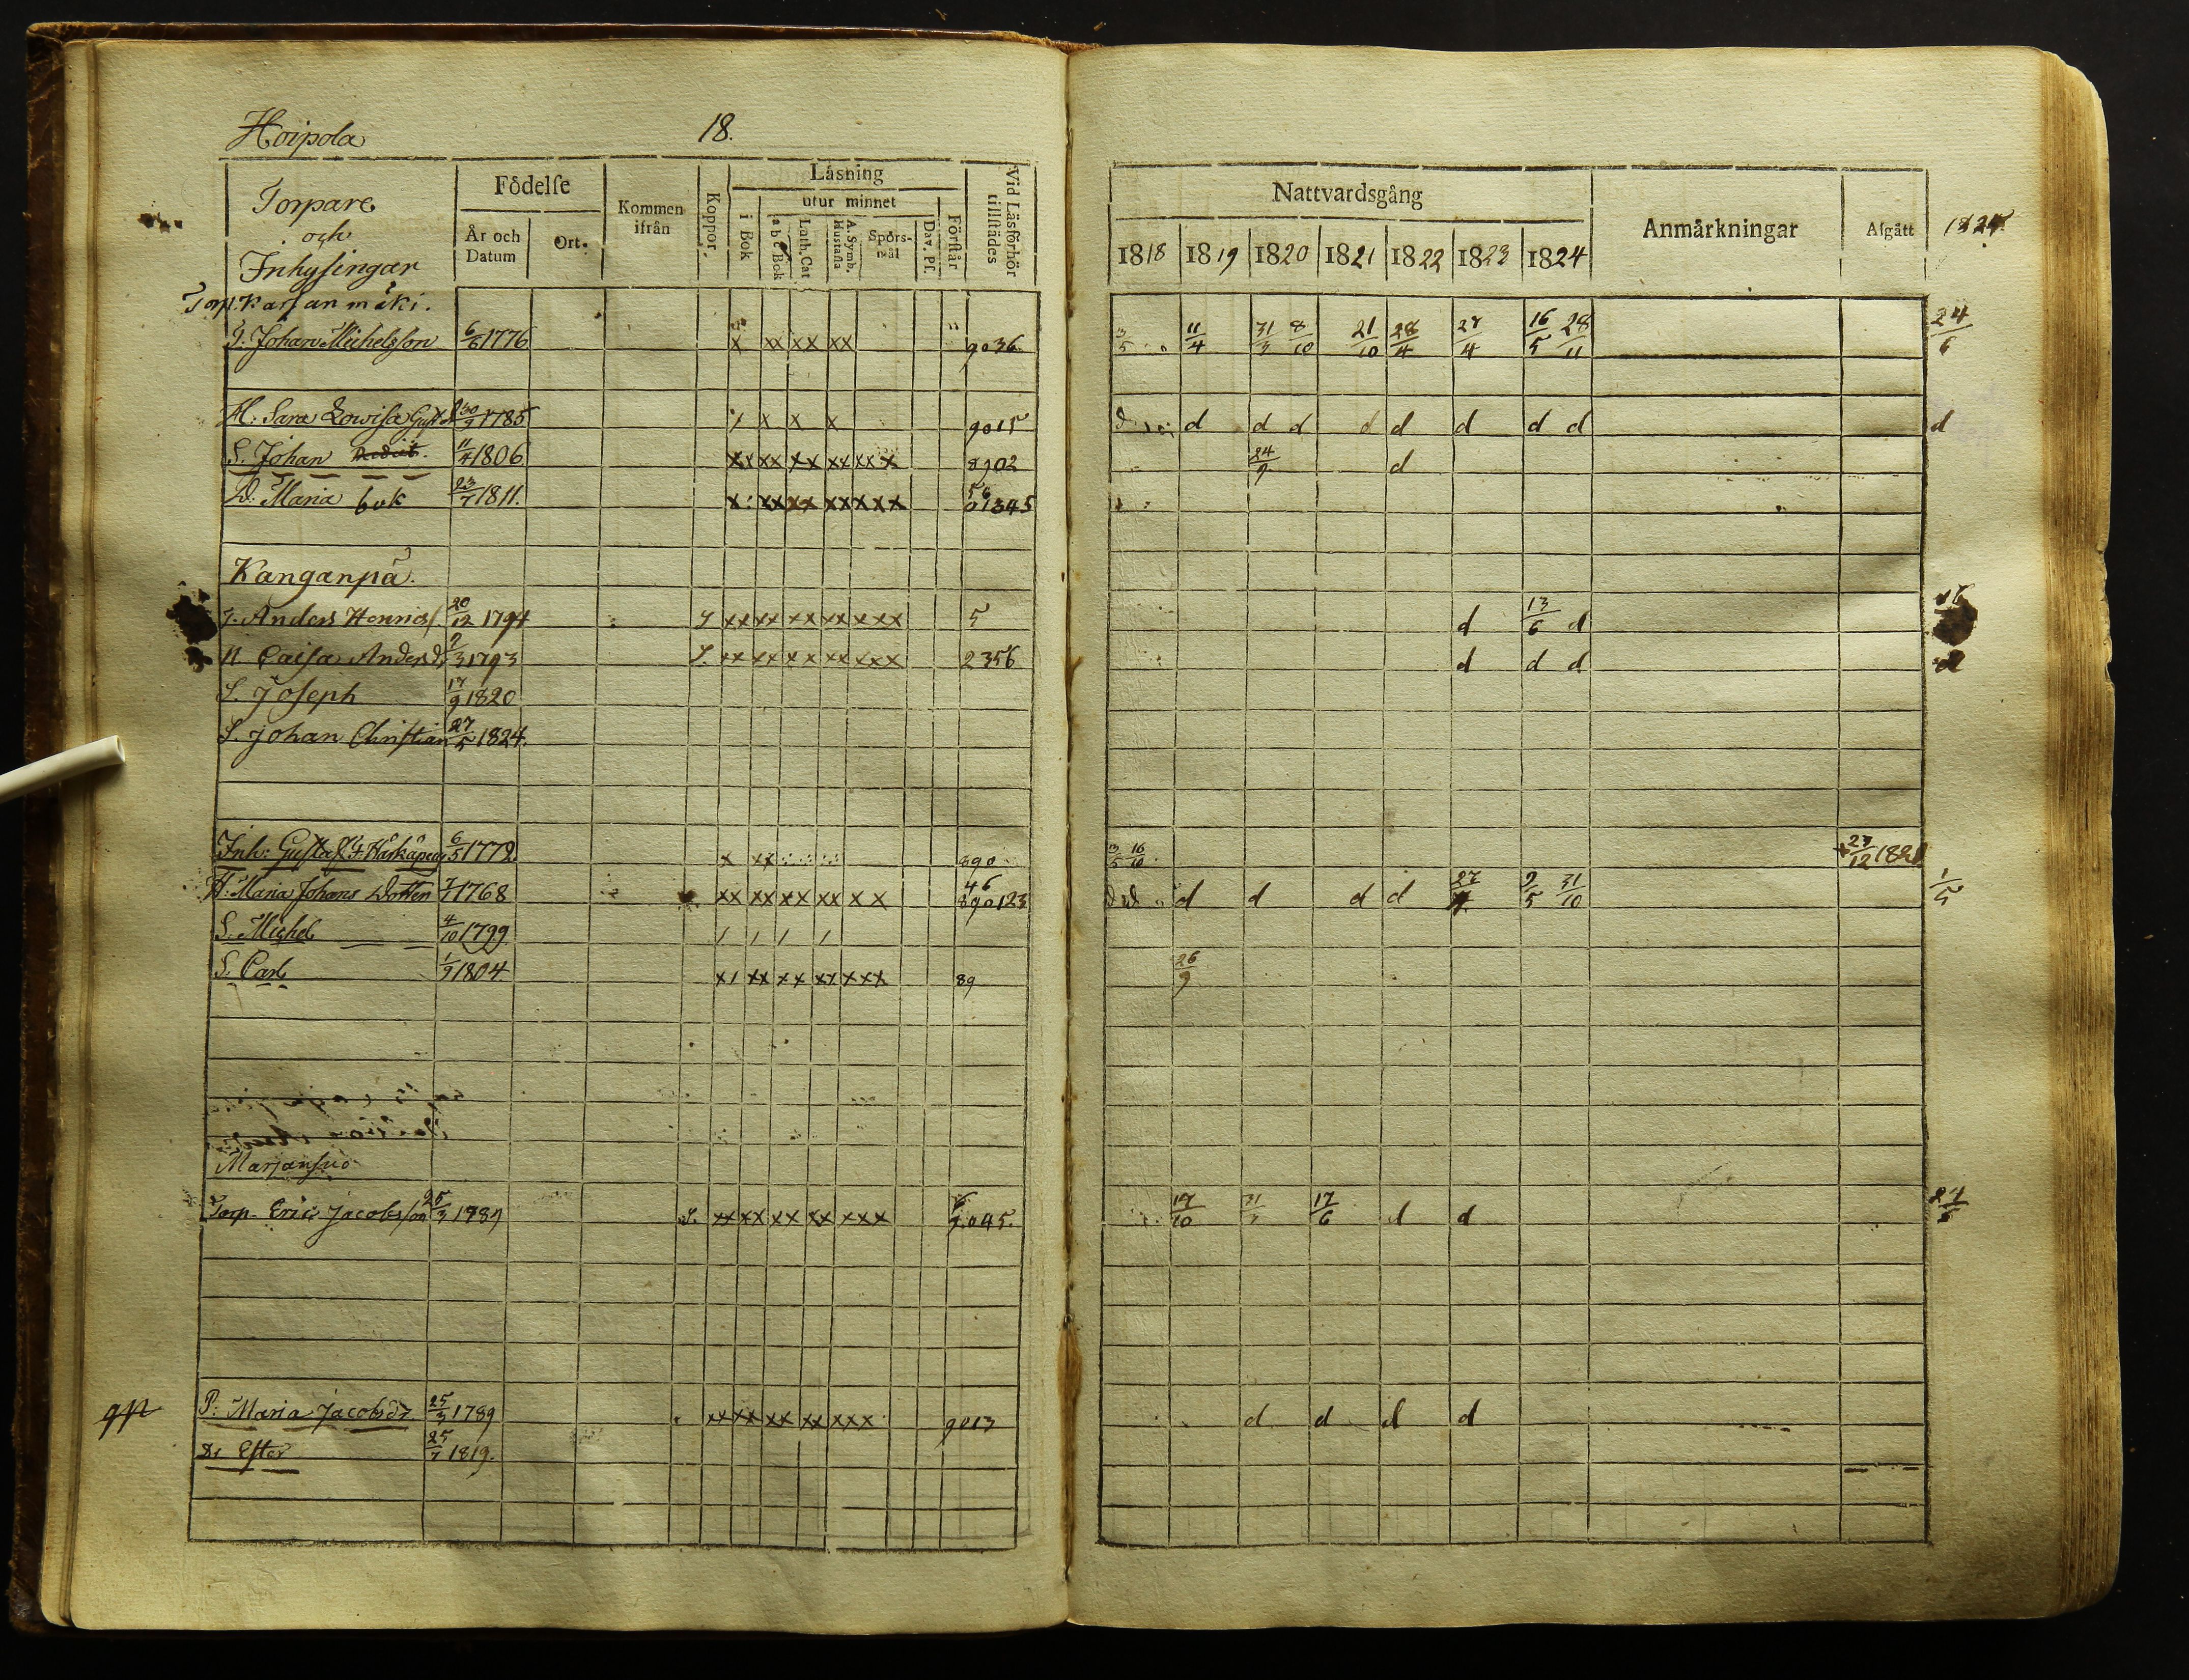 Hoipola 18.
Torpare och Inhysingar
Födelse
År och Datum
Ort.
Kommen ifrån
Koppor.
Läsning
i Bok
utur minnet
a b c Bok
Luth. Cat
A. Symb. Hustafla
Spörsmål
Dav. Ps.
Förstår
Vid Läsförhör tillstädes
Nattvardsgång
1818 1819 1820 1821 1822 1823 1824
Anmärkningar
Afgått
Torp. Karjanmäki.
T. Johan Michelsson 6/6 1776 x xx xx xx 9036 11/4 31/3 8/10 21/10 28/4 27/4 16/5 28/11 24/6
H: Sara Lowisa 30/9 1785 x x x 9015 d d d d d d d d d
S. Johan 11/4 1806 xx xx xx xx xx x 8902 24/9 d
D: Maria bok 23/7 1811. x: xx xx xx xxx 56 01345
Kanganpä.
T. Anders Henrics 20/12 1794 xx xx xx xx xxx 5 d 13/6 d
H Caisa Andersd. 1793 xx xx xx xx xxx 2356 d d d d
S. Joseph 17/9 1820
S. Johan Christian 27/5 1824.
Inh: Gustaf 6/5 1772 x xx 890 3/5 16/10 23/12 1821
H: Maria Johans Dotter 1768 xx xx xx xx x x 46 890123 d d d d d 27 9/5 31/10 1/5
S. Michel 4/10 1799 1 1 1 1
S. Carl 1/9 1804 x1 xx xx xx xxx 89 26/9
Marjansuo
Torp. Eric Jacobsson 25/3 1787 xx xx xx xx xxx 9045. 17/10 17/6 d d
P: Maria Jacobsdr 25/3 1789 xx xx xx xx xxx 9013 d d d d
D: Ester 25/7 1819.